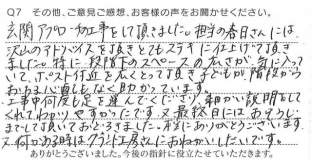 Q7 その他、ご意見ご感想、お客様の声をお聞かせください。
玄関アプローチ工事をして頂きました。担当の春日さんには、
沢山のアドバイスを頂きとてもステキに仕上げて頂き
ました。特に階段下のスペースの広さが気に入って
いて、ポスト付近を広くとって頂き子どもが階段から
おちる心配もなく助かっています。
工事中何度も足を運んでくださり、細かい説明もして
くれてわかりやすかったです。又最終日にはおそうじ
までして頂いておどろきました。本当にありがとうございます。
又何かある時はグランド工房さんにおねがいしたいです。
ありがとうございました。今後の指針に役立たせていただきます。